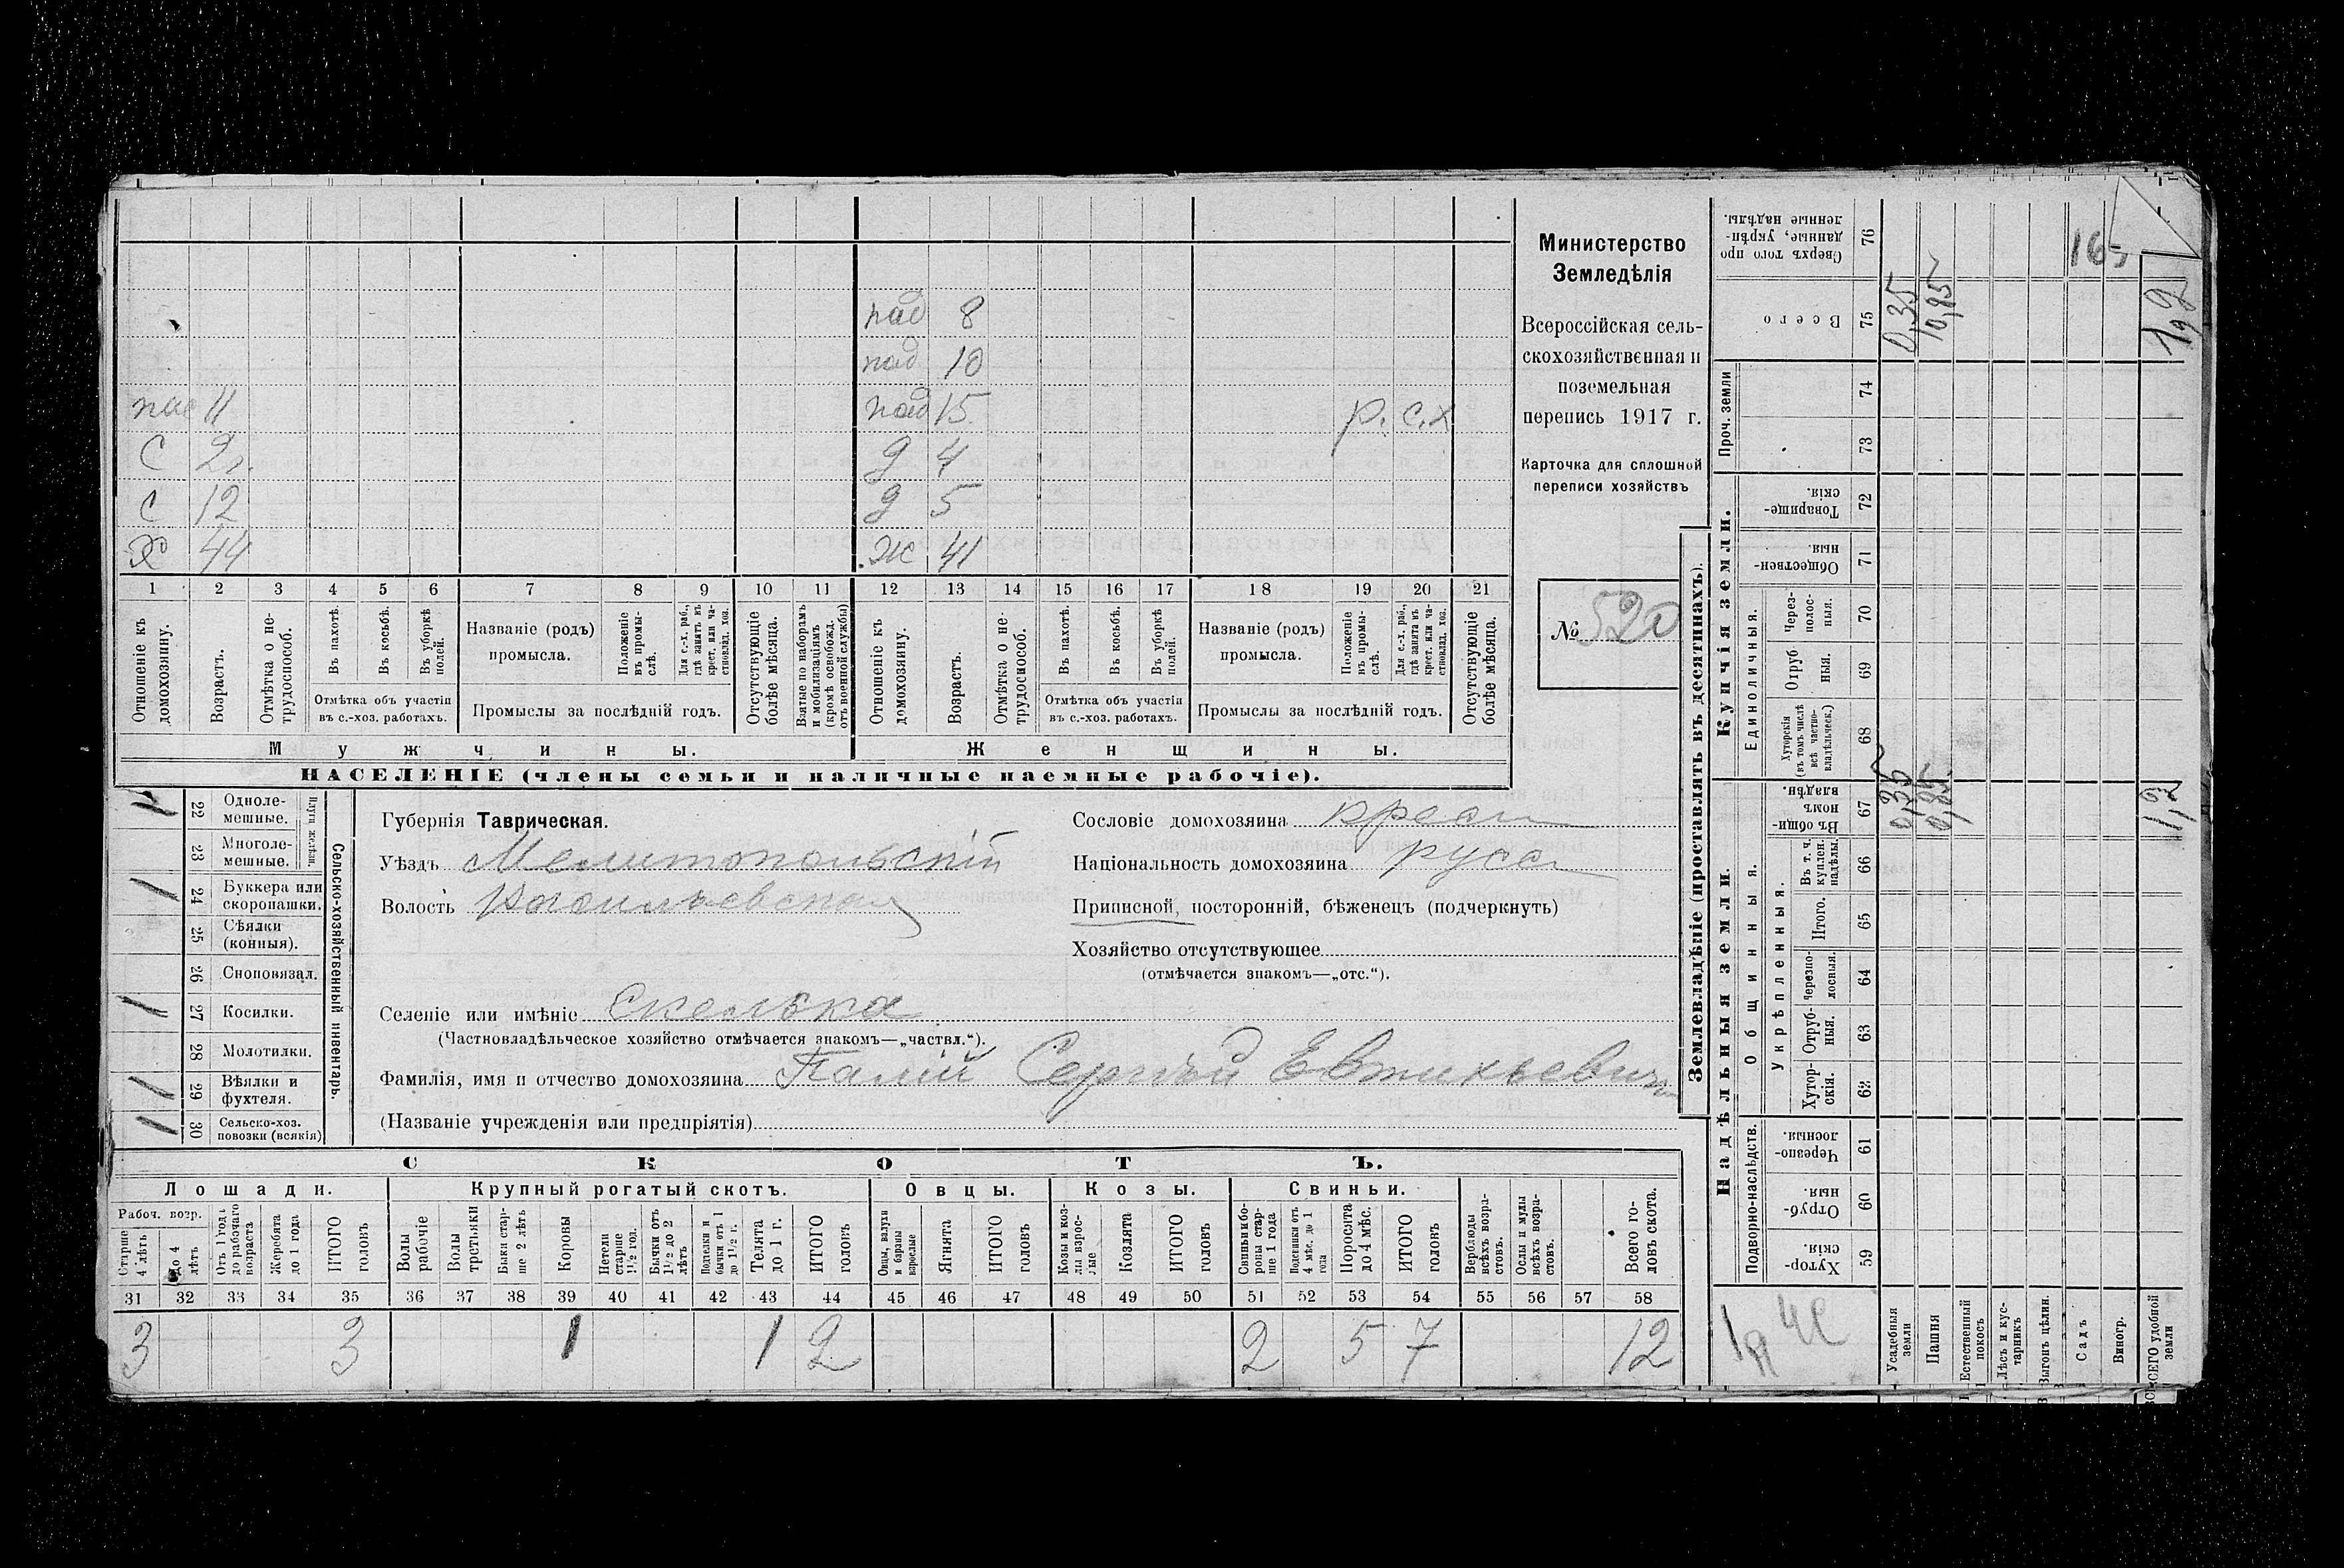 пад 8
пад 10
пас 11 пад 15 р. с.х
С 2г. д 4
с 12 д 5
Х 44 Ж 41
1 2 3 4 5 6 7 8 9 10 11 12 13 14 15 16 17 18 19 20 21
Отношеніе къ домохозяину.
Возрастъ.
Отмѣтка о не-трудоспособ.
Въ пахотѣ.
Въ косьбѣ.
Въ уборкѣ полей.
Отмѣтка объ участіи въ с.-хоз. работахъ.
Названіе (родъ) промысла.
Положеніе въ промы-слѣ.
Для с.-х. раб., гдѣ занятъ въ крест. или ча-стновлад. хоз.
Промыслы за послѣдній годъ.
Отсутствующіе болѣе мѣсяца.
Взятые по наборамъ и мобилизаціямъ (кромѣ освобожд. отъ военной службы)
Отношеніе къ домохозяину.
Возрастъ.
Отмѣтка о не-трудоспособ.
Въ пахотѣ.
Въ косьбѣ.
Въ уборкѣ полей.
Отмѣтка объ участіи въ с.-хоз. работахъ.
Названіе (родъ) промысла.
Положеніе въ промы-слѣ.
Для с.-х. раб., гдѣ занята въ крест. или ча-стновлад. хоз.
Промыслы за послѣдній годъ.
Отсутствующіе болѣе мѣсяца.
Мужчины. Женщины.
НАСЕЛЕНІЕ (члены семьи и наличные наемные рабочіе).
Министерство
Земледѣлія
Всероссійская сель-
скохозяйственная и
поземельная
перепись 1917 г.
Карточка для сплошной
переписи хозяйствъ
№ 520
22 Одноле-мешные.
23 Многоле-мешные.
24 Буккера или скоропашки.
25 Сѣялки (конныя).
26 Сноповязал.
27 Косилки.
28 Молотилки.
29 Вѣялки и фухтеля.
30 Сельско-хоз. повозки (всякія)
Плуги желѣзн.
Сельско-хозяйственный инвентарь.
Губернія Таврическая.
Уѣздъ Мелитопольскій
Волость Васильевская
Селеніе или имѣніе Скелька
(Частновладѣльческое хозяйство отмѣчается знакомъ—„частвл.“).
Фамилія, имя и отчество домохозяина Палій Сергѣй Евтихьевич
(Названіе учрежденія или предпріятія)
Сословіе домохозяина крест
Національность домохозяина русс
Приписной, посторонній, бѣженецъ (подчеркнуть)
Хозяйство отсутствующее
(отмѣчается знакомъ—„отс.“).
СКОТЪ.
Лошади. Крупный рогатый скотъ. Овцы. Козы. Свиньи.
Рабоч. возр.
Старше 4 лѣтъ
до 4 лѣтъ
Отъ 1 года до рабочаго возраста
Жеребята до 1 года
ИТОГО головъ
Волы рабочіе
Волы третьяки
Быки стар-ше 2 лѣтъ
Коровы
Нетели старше 1½ год.
Бычки отъ 1½ до 2 лѣтъ
Подтелки и бычки отъ 1 до 1½ г.
Телята до 1 г.
ИТОГО головъ
Овцы, валухи и бараны взрослые
Ягнята
ИТОГО головъ
Козы и коз-лы взрос-лые
Козлята
ИТОГО головъ
Свиньи и бо-ровы стар-ше 1 года
Подсвинки отъ 4 мѣс. до 1 года
Поросята до 4 мѣс.
ИТОГО головъ
Верблюды всѣхъ возра-стовъ.
Ослы и мулы всѣхъ возра-стовъ.
Всего го-ловъ скота.
31 32 33 34 35 36 37 38 39 40 41 42 43 44 45 46 47 48 49 50 51 52 53 54 55 56 57 58
3 3 1 1 2 2 5 7 12
Землевладѣніе (проставлять въ десятинахъ).
Надѣльныя земли. Купчія земли.
Подворно-наслѣдств.
Общинныя.
Укрѣпленныя.
Единоличныя.
Проч. земли
59 Хутор-скія.
60 Отруб-ныя.
61 Черезпо-лосныя.
62 Хутор-скія.
63 Отруб-ныя.
64 Черезпо-лосныя.
65 Итого.
66 Въ т. ч. куплен. надѣлы.
67 Въ общи-номъ владѣн.
68 Хуторскія (въ томъ числѣ всѣ частно-владѣльческ.)
69 Отруб-ныя.
70 Через-полос-ныя.
71 Обществен-ныя.
72 Товарище-скія.
73
74
75 Всего
76 Сверхъ того про данные, укрѣп-ленные надѣлы.
Усадебныя земли 0,35 0,35
Пашня 0,85 10,85
Естественный покосъ
Лѣсъ и кус-тарникъ
Выгонъ цѣлин.
Садъ
Виногр.
ВСЕГО удобной земли 1,2